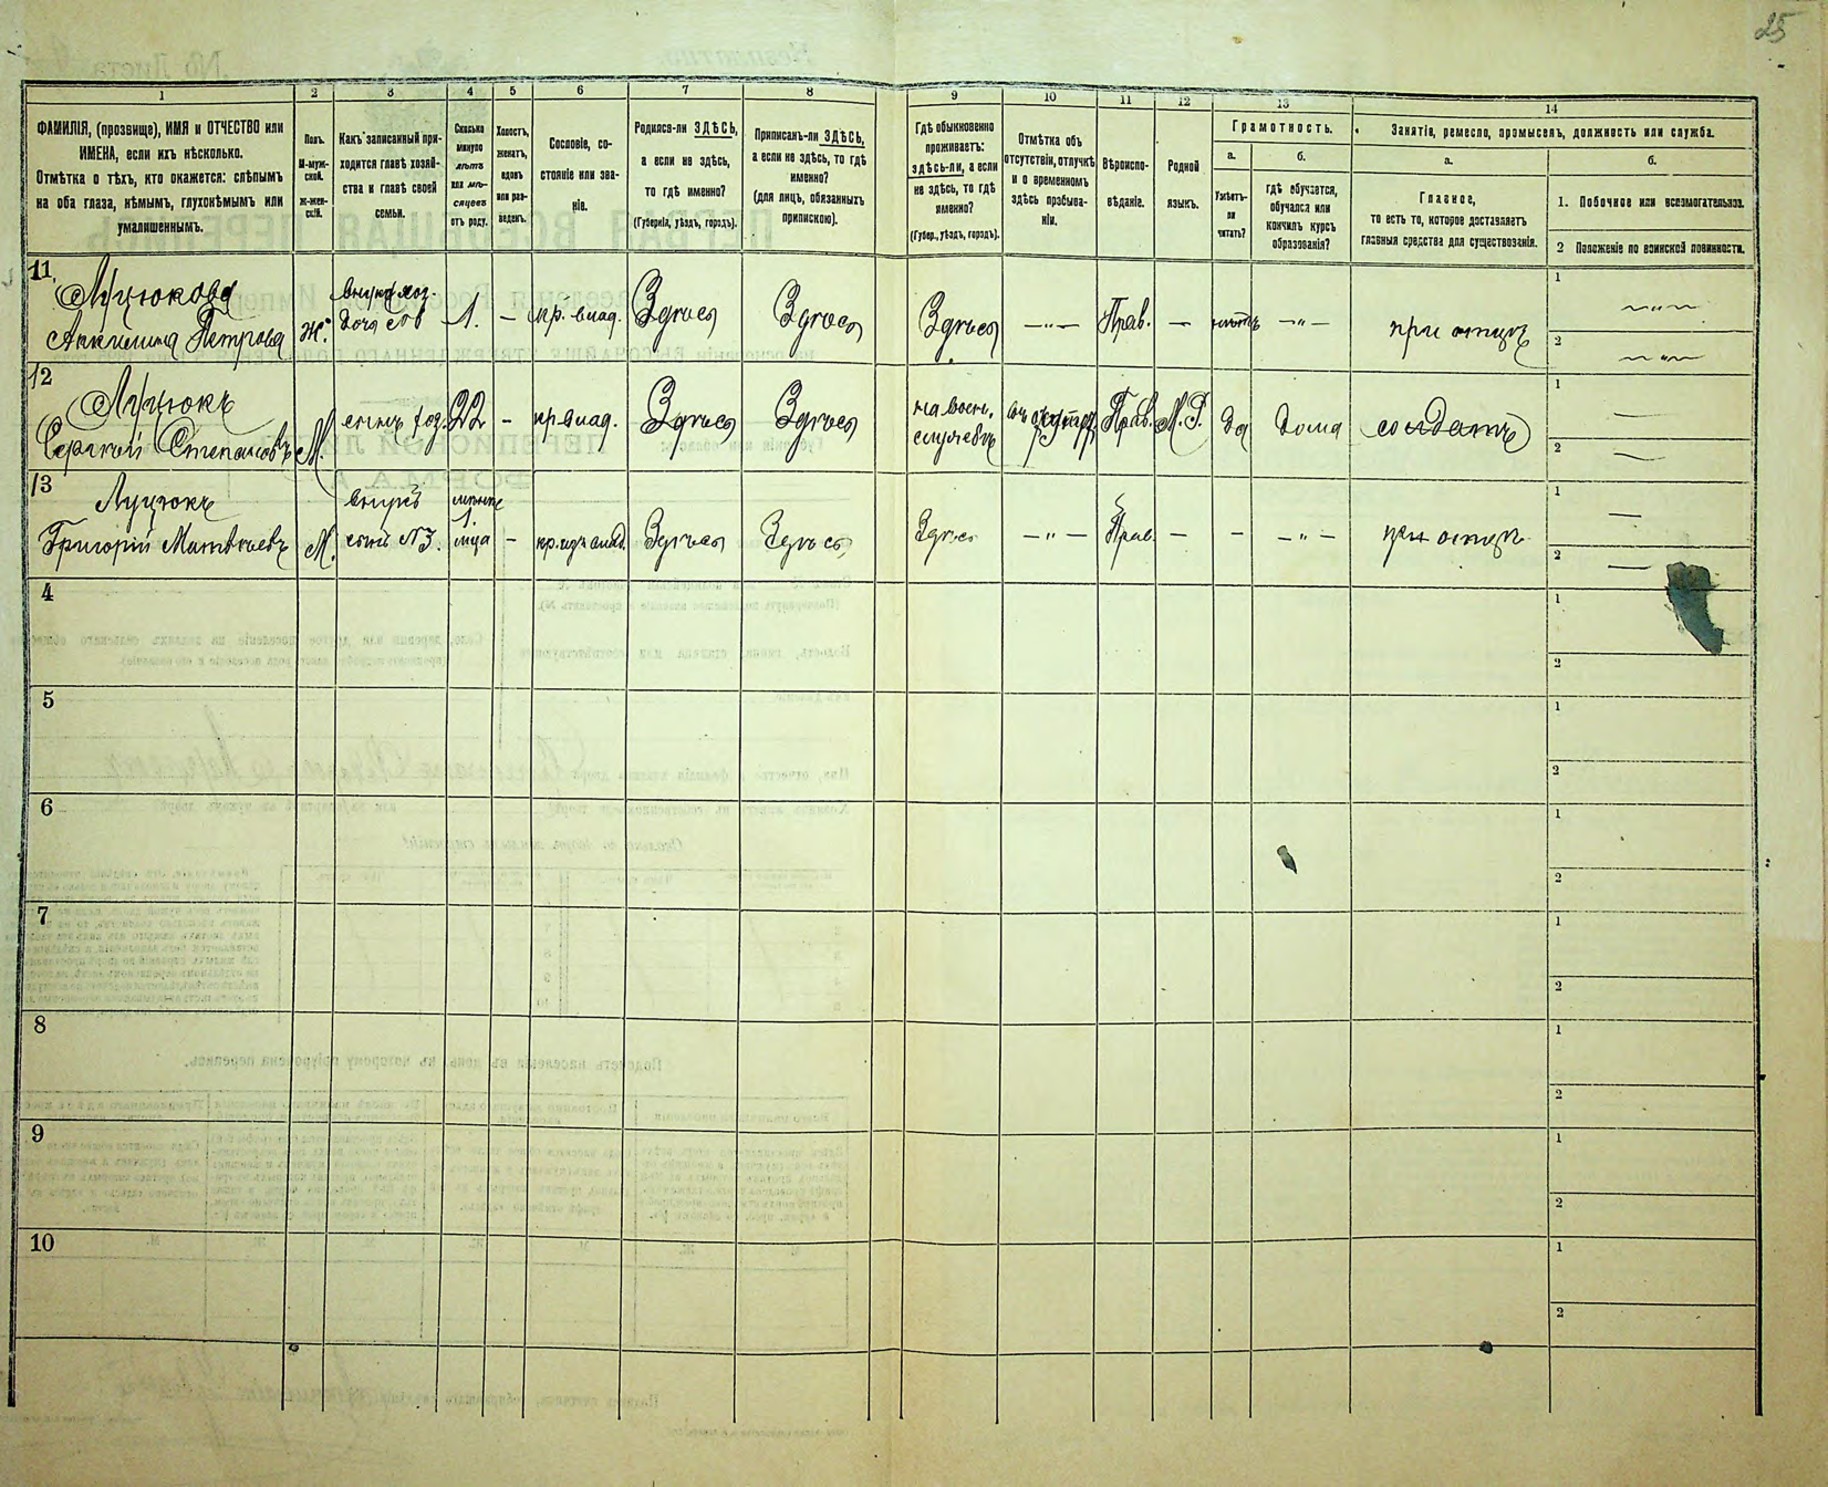 25
1 2 3 4 5 6 7 8 9 10 11 12 13 14
ФАМИЛІЯ, (прозвище), ИМЯ и ОТЧЕСТВО или
ИМЕНА, если ихъ нѣсколько.
Отмѣтка о тѣхъ, кто окажется: слѣпымъ
на оба глаза, нѣмымъ, глухонѣмымъ или
умалишеннымъ.
Полъ.
М-муж-
ской.
Ж-жен-
скій.
Какъ записанный при-
ходится главѣ хозяй-
ства и главѣ своей
семьи.
Сколько
минуло
лѣтъ
или мѣ-
сяцевъ
отъ роду.
Холостъ,
женатъ,
вдовъ
или раз-
веденъ.
Сословіе, со-
стояніе или зва-
ніе.
Родился-ли ЗДѢСЬ,
а если не здѣсь,
то гдѣ именно?
(Губернія, уѣздъ, городъ).
Приписанъ-ли ЗДѢСЬ,
а если не здѣсь, то гдѣ
именно?
(для лицъ, обязанныхъ
припискою).
Гдѣ обыкновенно
проживаетъ:
здѣсь-ли, а если
не здѣсь, то гдѣ
именно?
(Губер., уѣздъ, городъ).
Отмѣтка объ
отсутствіи, отлучкѣ
и о временномъ
здѣсь пребыва-
ніи.
Вѣроиспо-
вѣданіе.
Родной
языкъ.
Грамотность.
а.
Умѣетъ-
ли
читать?
б.
гдѣ обучается,
обучался или
кончилъ курсъ
образованія?
Занятіе, ремесло, промыселъ, должность или служба.
а.
Главное,
то есть то, которое доставляетъ
главныя средства для существованія.
б.
1. Побочное или вспомогательное.
2 Положеніе по воинской повинности.
11
Луцюкова
Аккилина Петрова
Ж.
внука хоз.
дочь
1.
—
кр. влад.
Здѣсь
Здѣсь
Здѣсь
— " —
Прав.
—
нѣтъ
— " —
при отцѣ
1
— " —
2
— " —
12
Луцюкъ
Сергѣй Степановъ
М.
сынъ хоз.
22
-
кр влад.
Здѣсь
Здѣсь
на воен.
службѣ
Прав.
М. Р.
да
дома
солдатъ
1
—
2
—
13
Луцюкъ
Григорій Матвѣевъ
М.
внукъ
сынъ №3.
1.
мца
-
Здѣсь
Здѣсь
Здѣсь
— " —
Прав.
-
-
— " —
при отцѣ
1
—
2
—
4
1
2
5
1
2
6
1
2
7
1
2
8
1
2
9
1
2
10
1
2